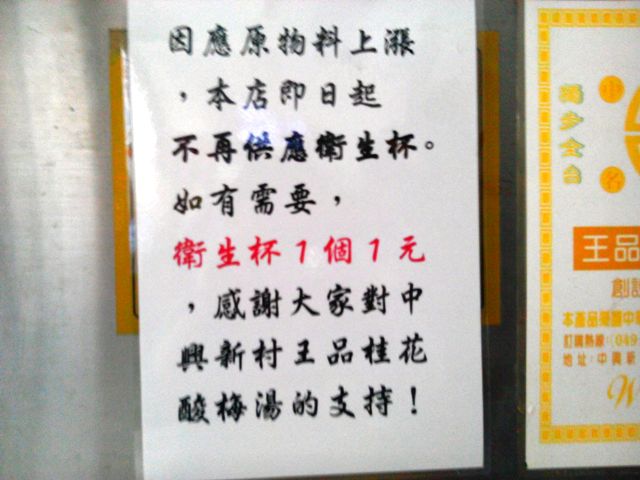 因應原物料上漲
，本店即日起
不再供應衛生杯。
如有需要，
衛生杯1個1元
，感謝大家對中
興新村王品桂花
酸梅湯的支持！
王品
創
本產品榮獲中
訂購熱線：(049
地址：中興新
W